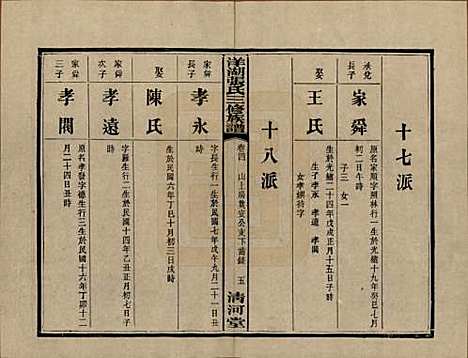 十七派
承兌
家舜
原名家順字楙林行一生於光緒十九年癸巳七月
初二日午時
子三 女一
娶
王氏
生於光緒二十四年戊戌正月十五日子時
生子孝永 孝遠 孝闊
女孝嫻待字
十八派
洋湖張氏三修族譜
卷四
山上房
公支下齒錄
五
清河堂
家舜
長子
孝永
字長生行一生於民國十一年壬戌九月二十一日丑
時
娶
陳氏
生於民國六年丁巳十月初三日戌時
家舜
次子
孝遠
字羅生行二生於民國十四年乙丑正月初七日酉
時
家舜
三子
孝闊
原名孝發字德生行三生於民國十六年丁卯十二
月二十四日丑時